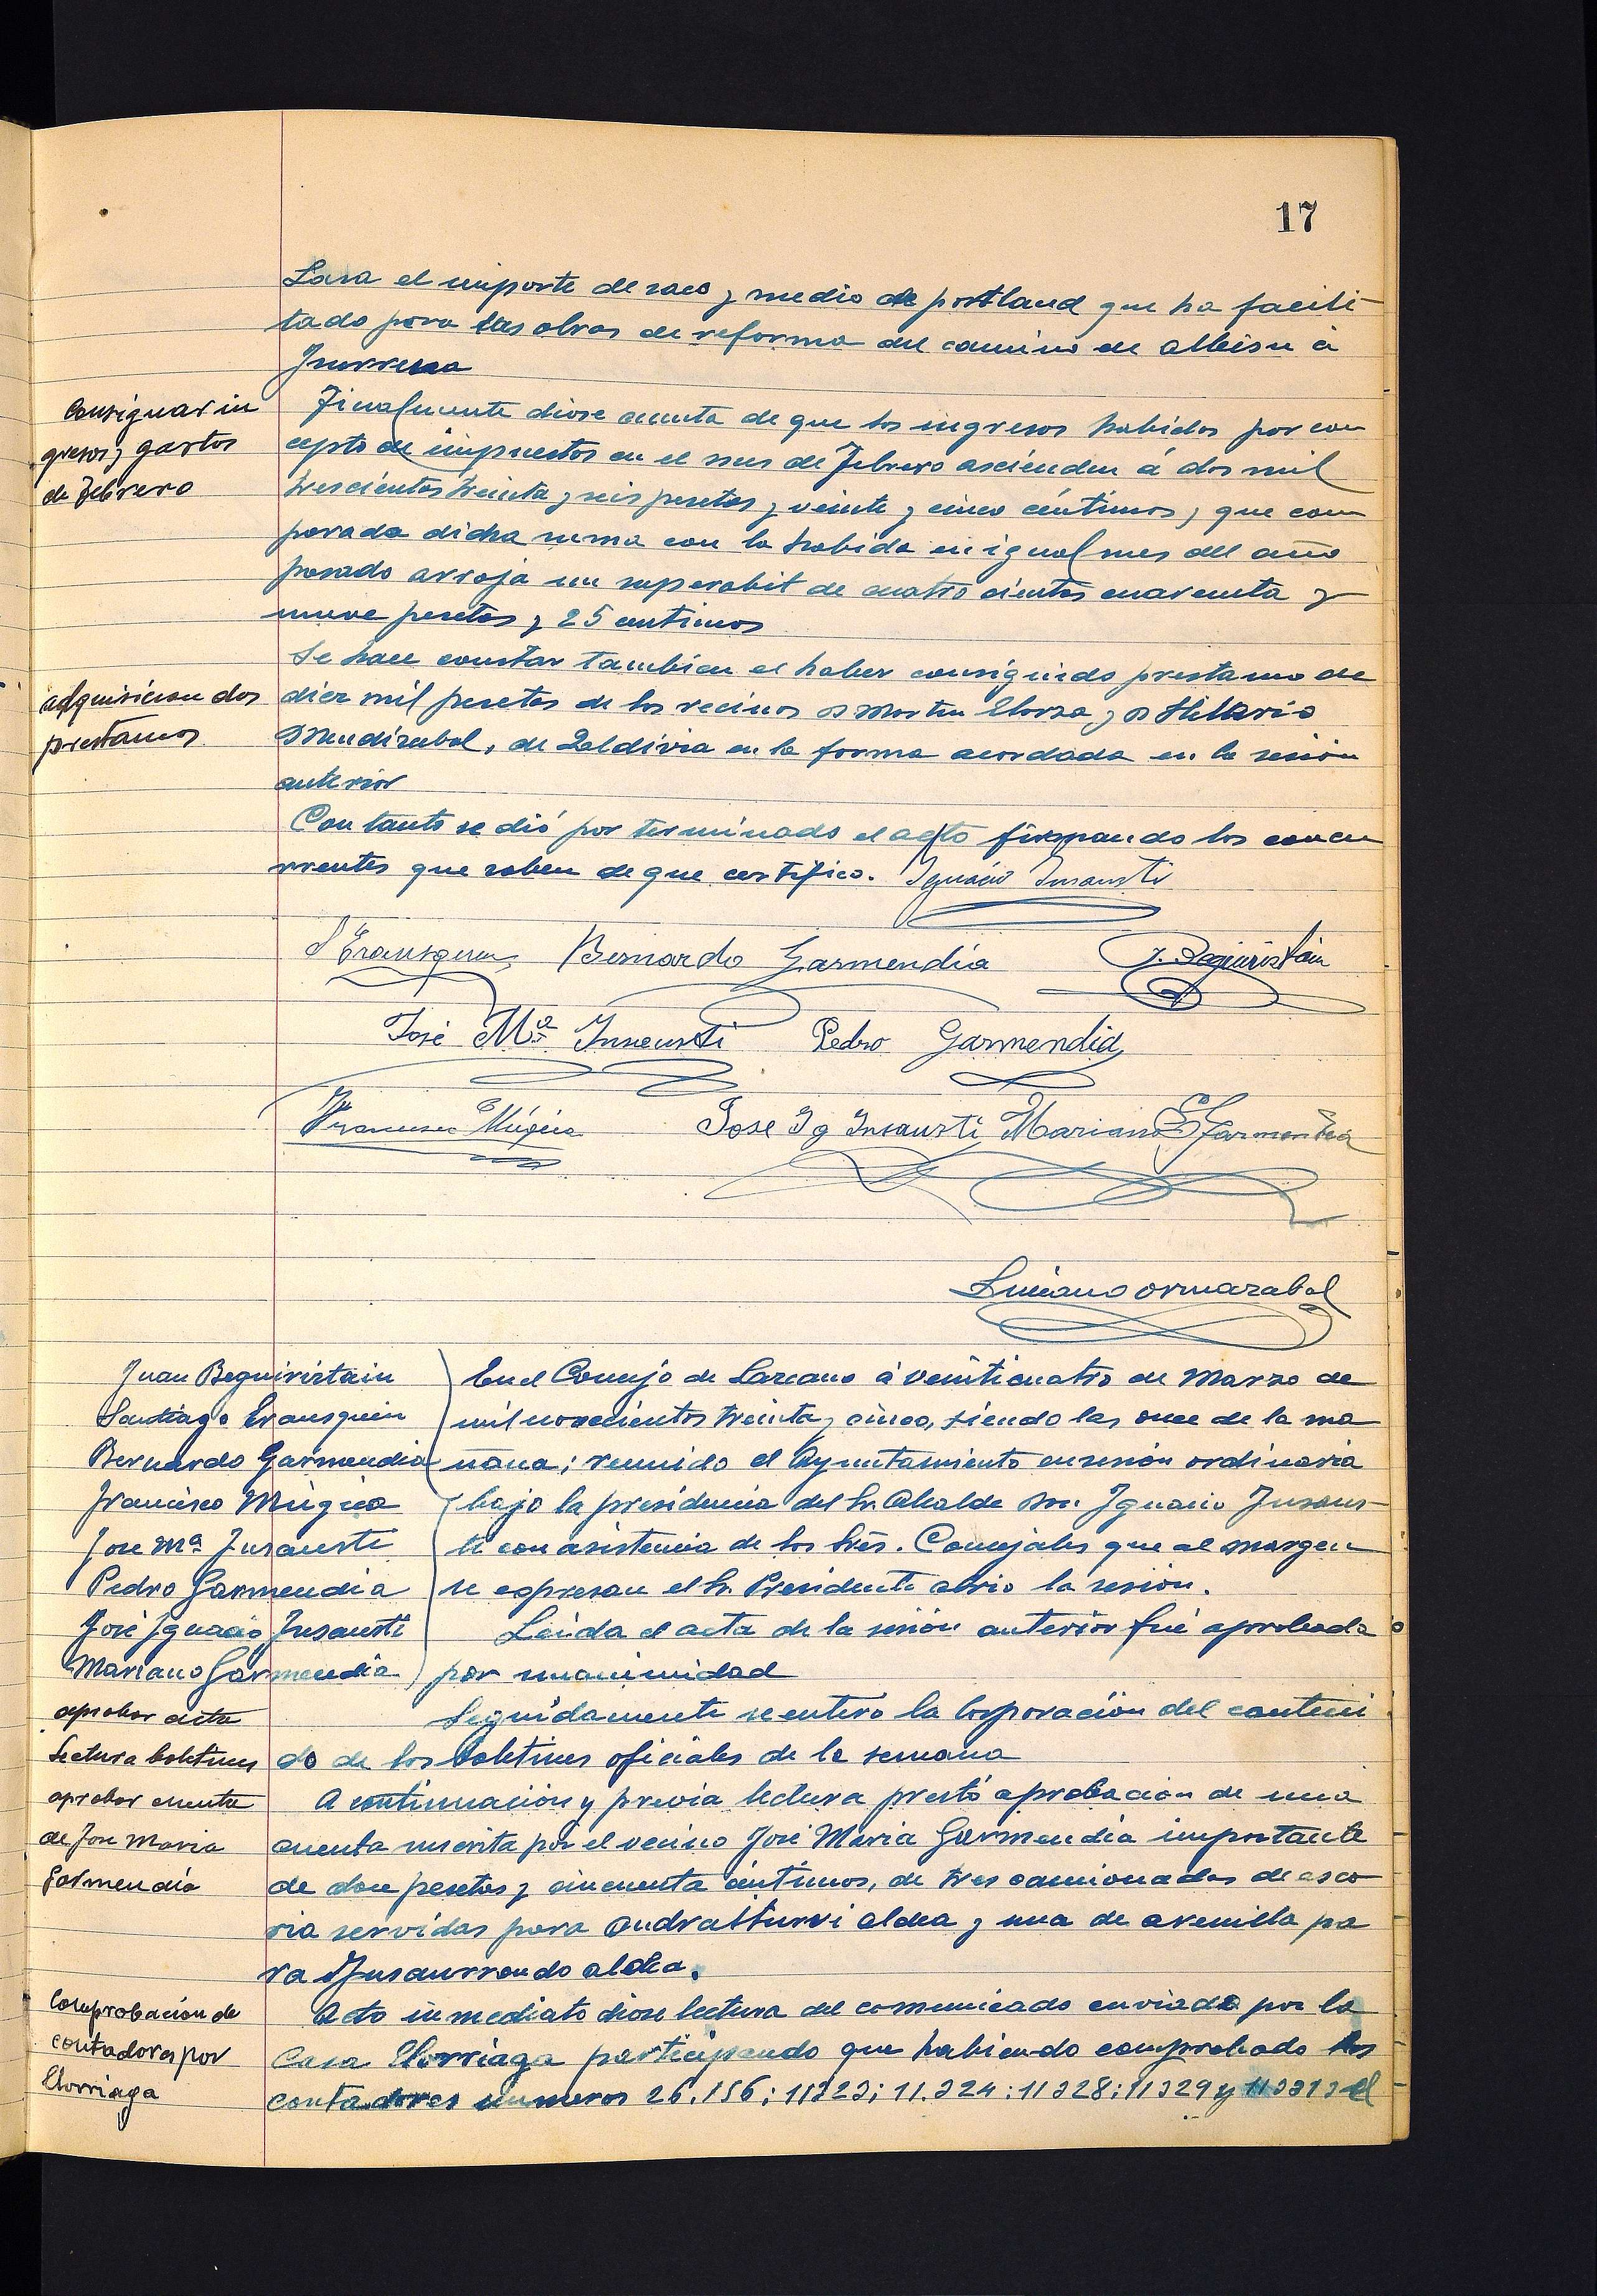 17
Lasa el importe de saco y medio de portland que ha facili-
tado para las obras de reforma del camino de Albisu á
Consignar in
gresos y gastos
de Febrero
Finalmente dióse cuenta de que los ingresos habidos por con
cepto de impuestos en el mes de Febrero ascienden á dos mil
trescientas treinta y seis pesetas y veinte y cinco céntimos, que com
parada dicha suma con la habida en igual mes del año
pasado arroja un superabit de cuatro cientas cuarenta y
nueve pesetas y 25 centimos
adquisicion dos
prestamos
Se hace constar tambien el haber conseguido prestamo de
diez mil pesetas de los vecinos Dn Martin Elorza y Dn Hilario
Mendizabal, de Zaldivia en la forma acordada en la sesión
anterior
Con tanto se dió por terminado el acto firmando los concu
rrentes que saben de que certifico. Ignacio Insausti
S Eransquin Bernardo Garmendia J. Beguiristain
José Mª Insausti Pedro Garmendia
Francisco Múgica José Ig Insausti Mariano Garmendia
Luciano Ormazabal
Juan Beguiristain
Santiago Eransquin
Bernardo Garmendia
Francisco Múgica
Jose Mª Insausti
Pedro Garmendia
José Ignacio Insausti
Mariano Garmendia
En el Concejo de Lazcano á veinticuatro de Marzo de
mil novecientos treinta y cinco, siendo las once de la ma
ñana; reunido el Ayuntamiento en sesión ordinaria
bajo la presidencia del Sr. Alcalde Don Ignacio Insaus-
ti con asistencia de los Sres. Concejales que al margen
se expresan el Sr. Presidente abrio la sesion.
Leida el acta de la sesión anterior fué aprobada
por unanimidad
aprobar acta
Lectura boletines
Seguidamente se enteró la Corporación del conteni
do de los boletines oficiales de la semana
aprobar cuenta
de Jose Maria
Garmendia
A continuación y previa lectura prestó aprobación de una
cuenta suscrita por el vecino José Maria Garmendia importante
de doce pesetas y cincuenta céntimos, de tres camionadas de esco
ria servidas para Andralturri aldea y una de arenilla pa
ra Insaurrondo aldea.
Comprobación de
contadores por
Elorriaga
Acto inmediato diose lectura del comunicado enviado por la
Casa Elorriaga participando que habiendo comprobado los
contadores numeros 26.156; 11323; 11.324; 11328; 11329 y el